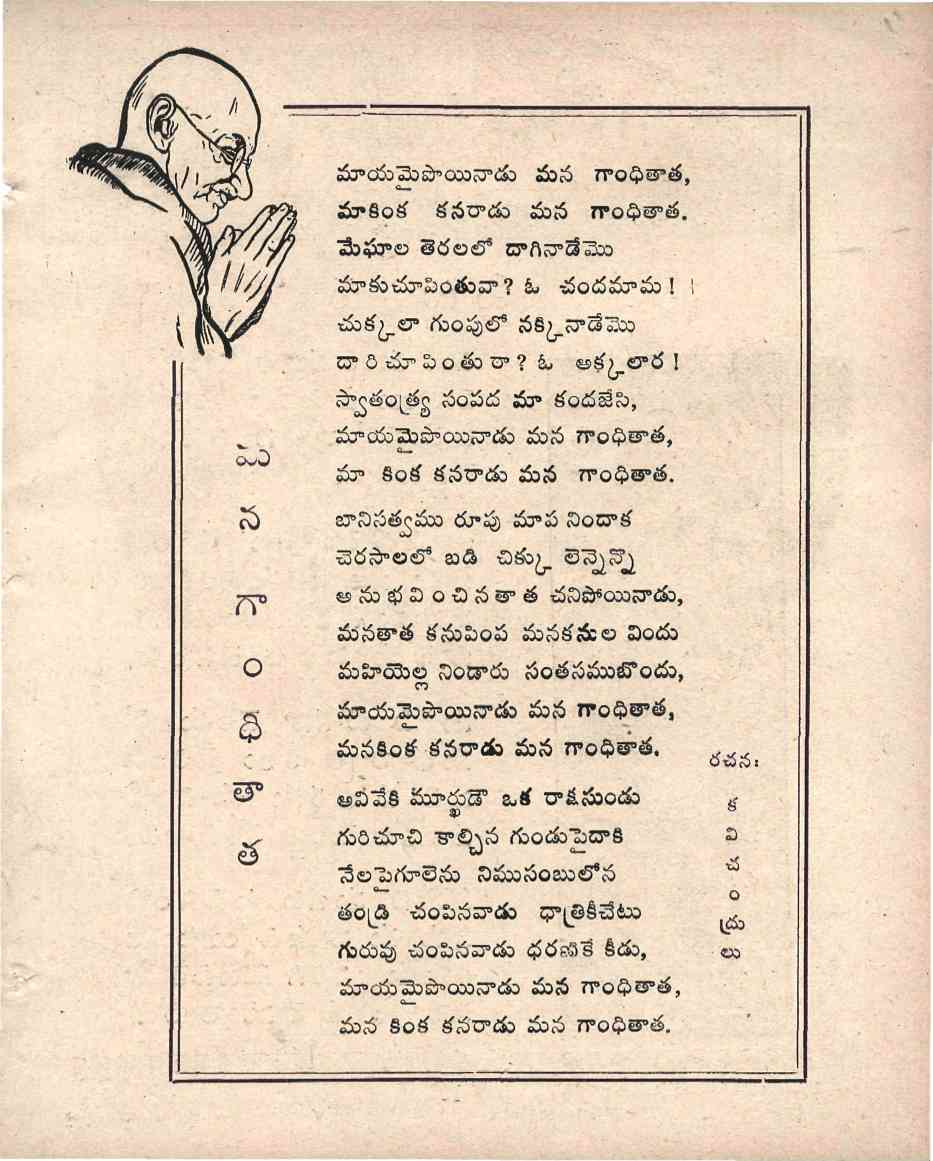 మన గాంధితాత
మాయమైపొయినాడు మన గాంధితాత,
మాకింక కనరాడు మన గాంధితాత.
మేఘాల తెరలలో దాగినాడేమొ
మాకుచూపింతువా? ఓ చందమామ!
చుక్కలా గుంపులో నక్కినాడేమొ
దారిచూపింతురా? ఓ అక్కలార!
స్వాతంత్ర్య సంపద మా కందజేసి,
మాయమైపొయినాడు మన గాంధితాత,
మా కింక కనరాడు మన గాంధితాత.
బానిసత్వము రూపు మాప నిందాక
చెరసాలలో బడి చిక్కు లెన్నెన్నొ
అనుభవించినతాత చనిపోయినాడు,
మనతాత కనుపింప మనకనుల విందు
మహియెల్ల నిండారు సంతసముబొందు,
మాయమైపొయినాడు మన గాంధితాత,
మనకింక కనరాడు మన గాంధితాత.
అవివేకి మూర్ఖుడౌ ఒక రాక్షసుండు
గురిచూచి కాల్చిన గుండుపైదాకి
నేలపైగూలెను నిముసంబులోన
తండ్రి చంపినవాడు ధాత్రికీచేటు
గురువు చంపినవాడు ధరణికే కీడు,
మాయమైపొయినాడు మన గాంధితాత,
మన కింక కనరాడు మన గాంధితాత.
రచన:
కవిచంద్రులు